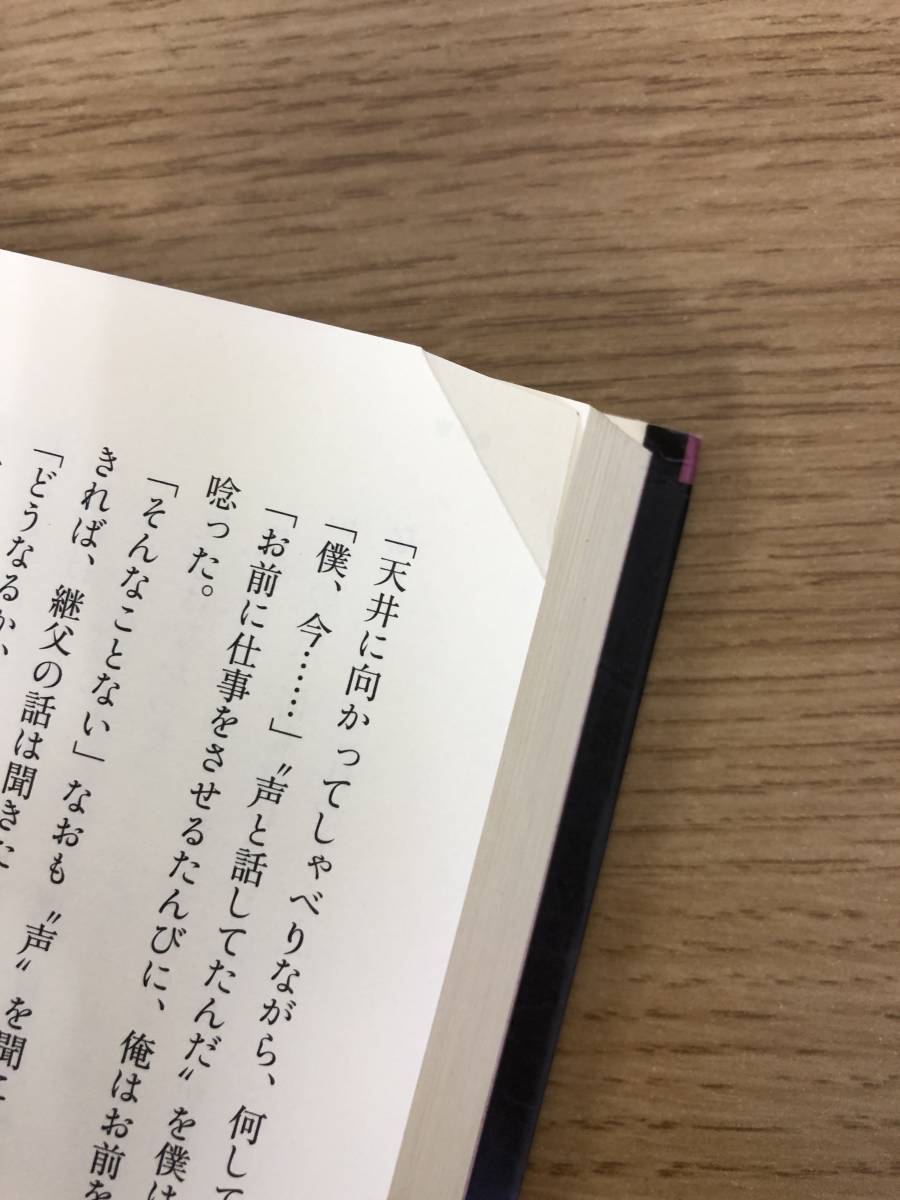 「天井に向かってしゃべりながら、何して
「僕、今……」〝声と話してたんだ〟を僕は
「お前に仕事をさせるたんびに、俺はお前を
唸った。
「そんなことない」なおも〝声〟を聞こ
きれば、継父の話は聞きた
「どうなるか、